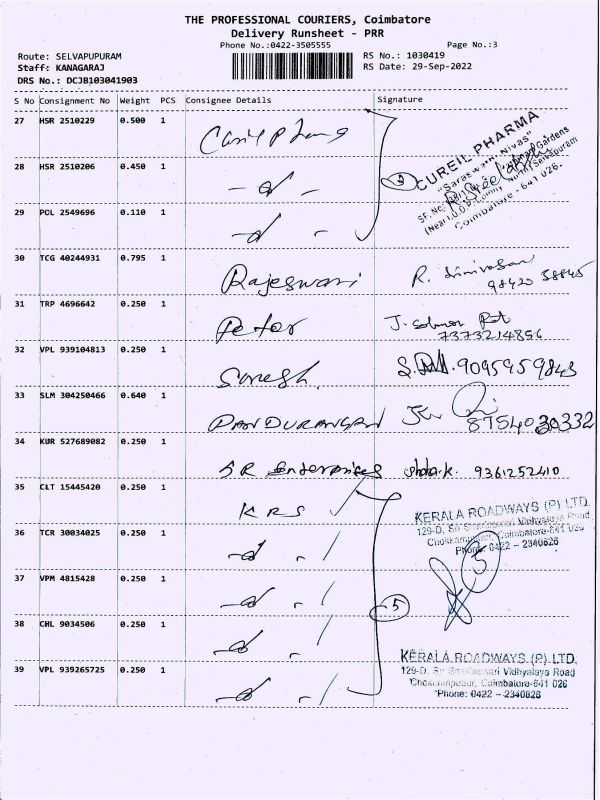 THE PROFESSIONAL COURIERS, Coimbatore
Delivery Runsheet - PRR
Phone No.:0422-3505555 Page No.:3
Route: SELVAPUPURAM RS No.: 1030419
Staff: KANAGARAJ RS Date: 29-Sep-2022
DRS No.: DCJB103041903
S No Consignment No Weight PCS Consignee Details Signature
27 HSR 2510229 0.500 1
CUREIL PHARMA
"Saraswathi Nivas"
28 HSR 2510206 0.450 1 -d- 3
Coimbatore - 641 026.
29 POL 2549696 0.110 1 -d-
30 TCG 40244931 0.795 1 Rajeswari R. Srinivasan
31 TRP 4696642 0.250 1 Peter J.
7373214856
32 VPL 939104813 0.250 1 Suresh. 9095959843
33 SLM 304250466 0.640 1 PANDURANGAN
8754030332
34 KUR 527689082 0.250 1 SR Enterprises 9361252410
35 CLT 15445420 0.250 1 KRS
KERALA ROADWAYS (P) LTD.
36 TCR 30034025 0.250 1 -d-
Phone: 0422 - 2340826
5
37 VPM 4815428 0.250 1 -d-
5
38 CHL 9034506 0.250 1 -d-
KERALA ROADWAYS (P) LTD.
39 VPL 939265725 0.250 1 -d-
Vidhyalaya Road
Coimbatore-641 026
Phone: 0422 - 2340826